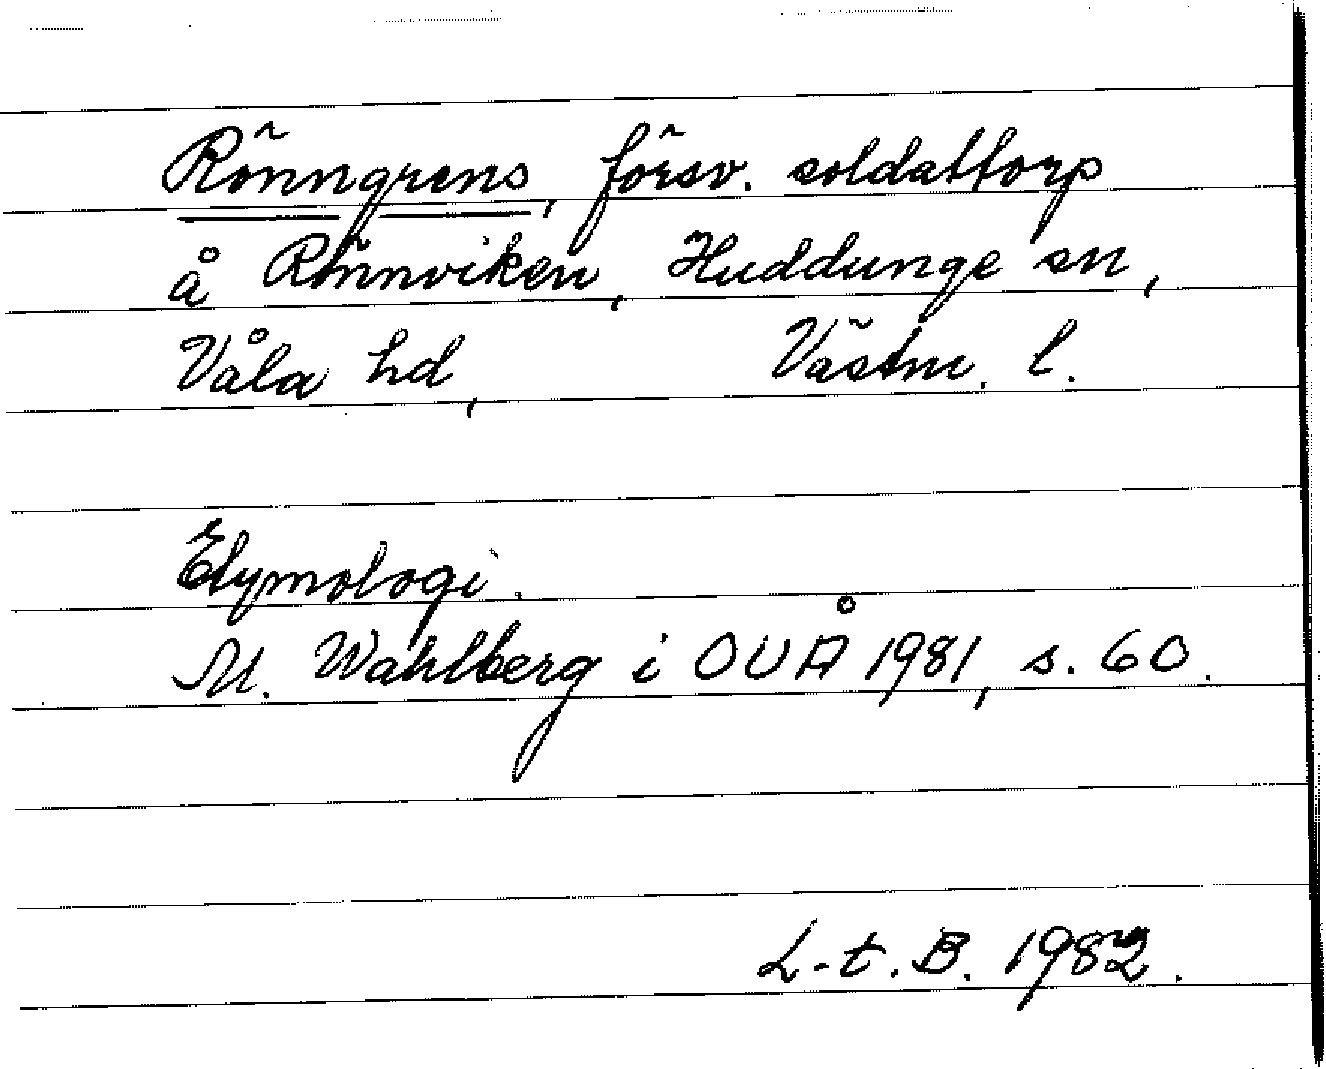 Rönngrens, försv. soldattorp
å Rönnviken, Huddunge sn,
Våla hd, Västm. l.
Etymologi.
M. Wahlberg i OUÅ 1981, s. 60.
L-t. B. 1982.